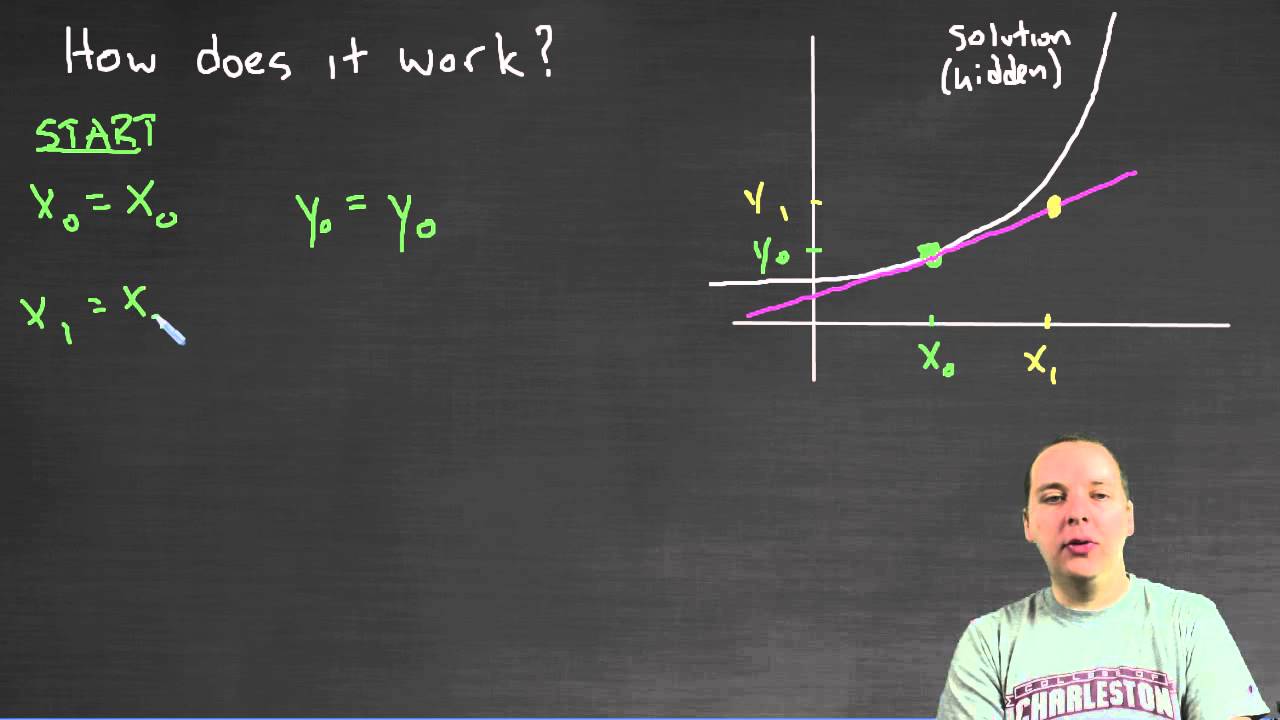 How does it work?
START
x₀ = x₀
y₀ = y₀
x₁ = x
solution
(hidden)
y₁
y₀
x₀
x₁
COLLEGE OF
CHARLESTON